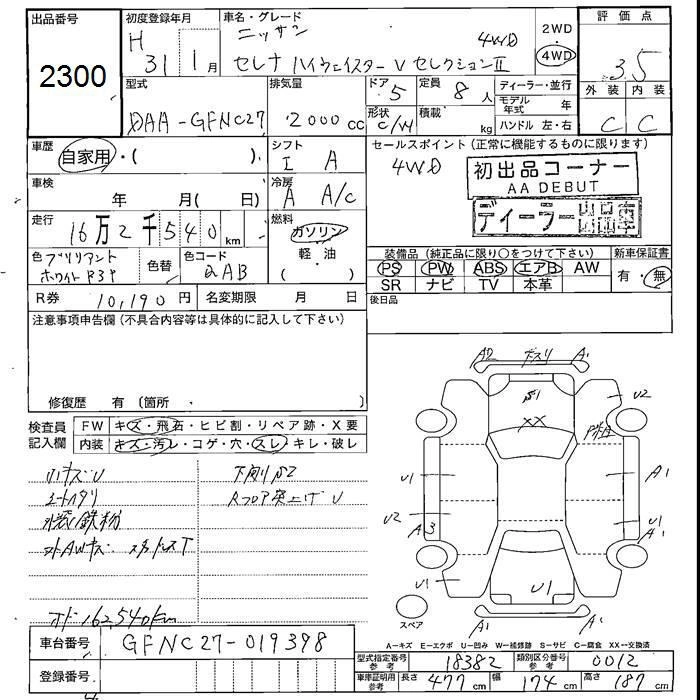 出品番号
2300
初度登録年月
H 31年 1月
車名・グレード
ニッサン
セレナ ハイウェイスター V セレクションII
4WD
2WD
4WD
評価点
3.5
外装 内装
C C
型式
DAA-GFNC27
排気量
2000cc
ドア
5
形状
C/W
定員
8人
積載
kg
ディーラー・並行
モデル年式 年
ハンドル 左・右
車歴
自家用・( )
シフト
I A
車検
年 月( 日)
冷房
A A/C
走行
16万2千540km
燃料
ガソリン
(軽・油)
色 ブリリアント
ホワイトP3P
色替
色コード
QAB
R券 10,190円
名変期限 月 日
セールスポイント(正常に機能するものに限ります)
4WD
初出品コーナー
AA DEBUT
ディーラー出品車
装備品(純正品に限り○をつけて下さい)
PS PW ABS エアB AW
SR ナビ TV 本革
新車保証書
有・無
後日品
注意事項申告欄(不具合内容等は具体的に記入して下さい)
修復歴 有(箇所 )
検査員記入欄
FW キズ・飛石・ヒビ割・リペア跡・X要
内装 キズ・汚レ・コゲ・穴・スレ・キレ・破レ
小キズU
下廻りS2
Rフロア突上げU
鉄粉
162,540km
車台番号 GFNC27-019398
登録番号
A2 A1
XX
U2
U1
U2
A3
U1
A1
U1
A1
U1
A1
スペア
A-キズ E-エクボ U-凹み W-補修跡 S-サビ C-腐食 XX-交換済
型式指定番号参考 18382
類別区分番号参考 0012
車庫証明用参考 長さ 477cm 幅 174cm 高さ 187cm